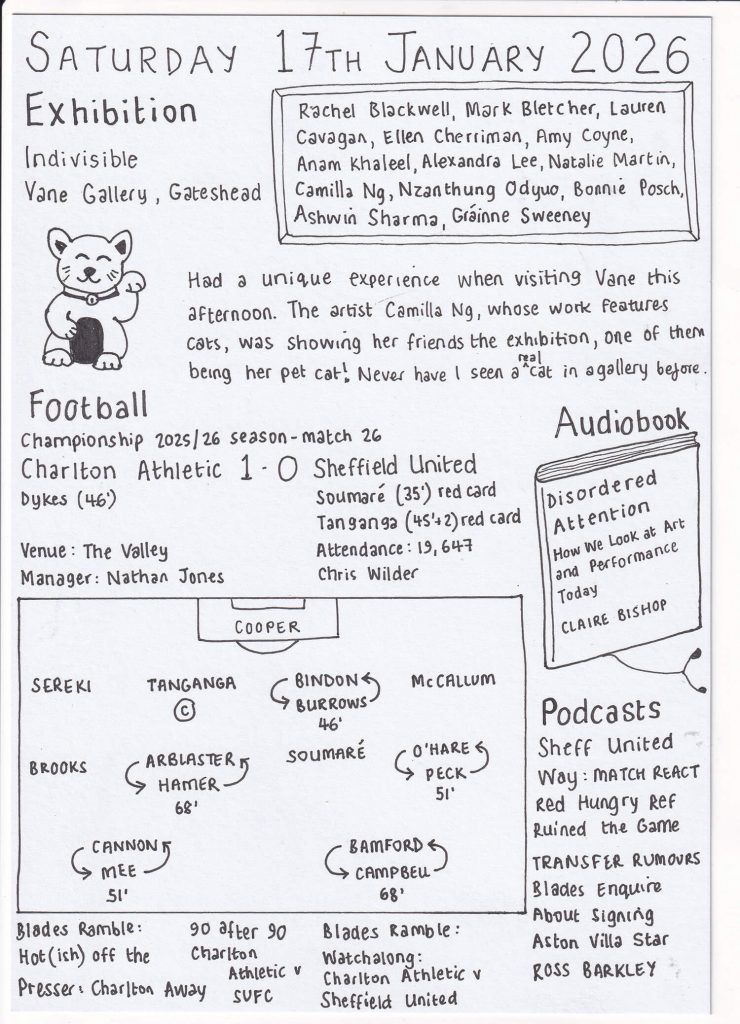 SATURDAY 17TH JANUARY 2026
Exhibition
Indivisible
Vane Gallery, Gateshead
Rachel Blackwell, Mark Bletcher, Lauren
Cavagan, Ellen Cherriman, Amy Coyne,
Anam Khaleel, Alexandra Lee, Natalie Martin,
Camilla Ng, Nzanthung Odyuo, Bonnie Posch,
Ashwin Sharma, Gráinne Sweeney
Had a unique experience when visiting Vane this
afternoon. The artist Camilla Ng, whose work features
cats, was showing her friends the exhibition, one of them
being her pet cat! Never have I seen a real cat in a gallery before.
Football
Championship 2025/26 season - match 26
Charlton Athletic 1 - 0 Sheffield United
Dykes (46')
Soumaré (35') red card
Tanganga (45'+2) red card
Venue: The Valley
Attendance: 19,647
Manager: Nathan Jones
Chris Wilder
COOPER
SEREKI
TANGANGA
C
BINDON
BURROWS
46'
McCALLUM
BROOKS
ARBLASTER
HAMER
68'
SOUMARÉ
O'HARE
PECK
51'
CANNON
MEE
51'
BAMFORD
CAMPBELL
68'
Audiobook
Disordered
Attention
How We Look at Art
and Performance
Today
CLAIRE BISHOP
Podcasts
Sheff United
Way: MATCH REACT
Red Hungry Ref
Ruined the Game
TRANSFER RUMOURS
Blades Enquire
About Signing
Aston Villa Star
ROSS BARKLEY
Blades Ramble:
Hot(ish) off the
Presser: Charlton Away
90 after 90
Charlton
Athletic v
SUFC
Blades Ramble:
Watchalong:
Charlton Athletic v
Sheffield United